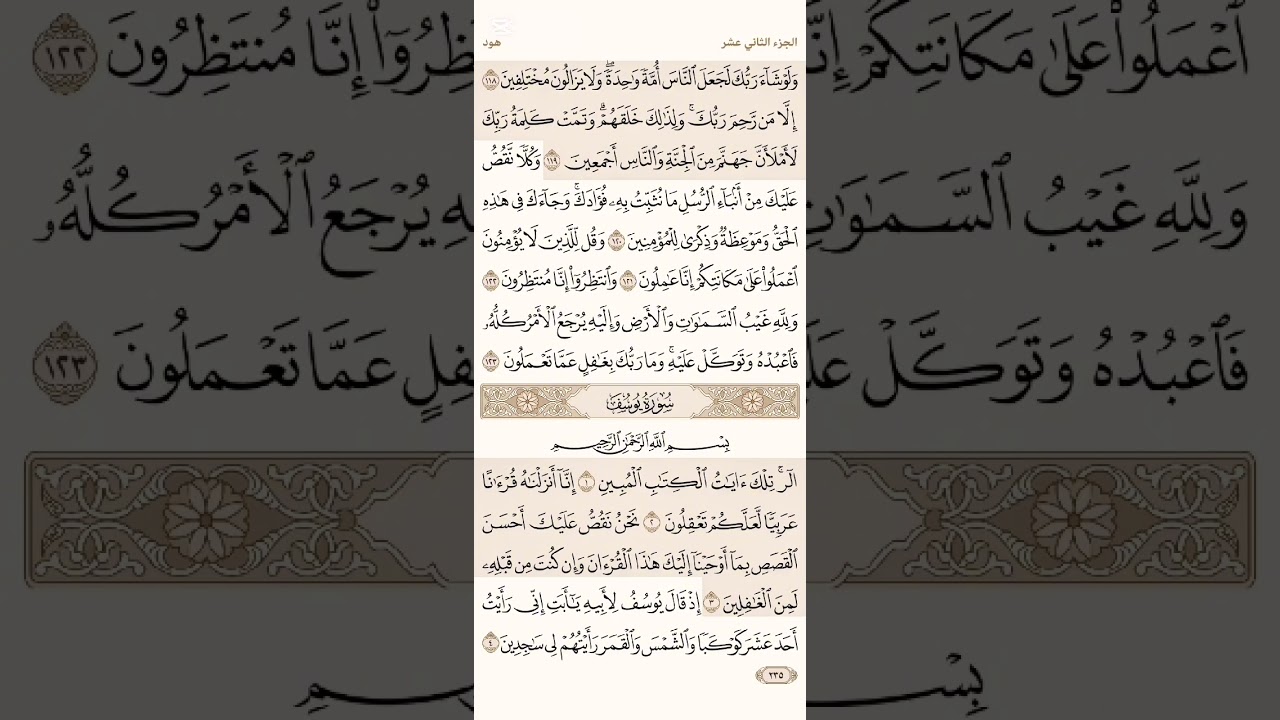 الجزء الثاني عشر
هود
وَلَوْ شَآءَ رَبُّكَ لَجَعَلَ ٱلنَّاسَ أُمَّةً وَٰحِدَةً ۖ وَلَا يَزَالُونَ مُخْتَلِفِينَ ١١٨
إِلَّا مَن رَّحِمَ رَبُّكَ ۚ وَلِذَٰلِكَ خَلَقَهُمْ ۗ وَتَمَّتْ كَلِمَةُ رَبِّكَ
لَأَمْلَأَنَّ جَهَنَّمَ مِنَ ٱلْجِنَّةِ وَٱلنَّاسِ أَجْمَعِينَ ١١٩ وَكُلًّا نَّقُصُّ
عَلَيْكَ مِنْ أَنۢبَآءِ ٱلرُّسُلِ مَا نُثَبِّتُ بِهِۦ فُؤَادَكَ ۚ وَجَآءَكَ فِى هَٰذِهِ
ٱلْحَقُّ وَمَوْعِظَةٌ وَذِكْرَىٰ لِلْمُؤْمِنِينَ ١٢٠ وَقُل لِّلَّذِينَ لَا يُؤْمِنُونَ
ٱعْمَلُوا۟ عَلَىٰ مَكَانَتِكُمْ إِنَّا عَٰمِلُونَ ١٢١ وَٱنتَظِرُوٓا۟ إِنَّا مُنتَظِرُونَ ١٢٢
وَلِلَّهِ غَيْبُ ٱلسَّمَٰوَٰتِ وَٱلْأَرْضِ وَإِلَيْهِ يُرْجَعُ ٱلْأَمْرُ كُلُّهُۥ
فَٱعْبُدْهُ وَتَوَكَّلْ عَلَيْهِ ۚ وَمَا رَبُّكَ بِغَٰفِلٍ عَمَّا تَعْمَلُونَ ١٢٣
سُورَةُ يُوسُفَ
بِسْمِ ٱللَّهِ ٱلرَّحْمَٰنِ ٱلرَّحِيمِ
الٓر ۚ تِلْكَ ءَايَٰتُ ٱلْكِتَٰبِ ٱلْمُبِينِ ١ إِنَّآ أَنزَلْنَٰهُ قُرْءَٰنًا
عَرَبِيًّا لَّعَلَّكُمْ تَعْقِلُونَ ٢ نَحْنُ نَقُصُّ عَلَيْكَ أَحْسَنَ
ٱلْقَصَصِ بِمَآ أَوْحَيْنَآ إِلَيْكَ هَٰذَا ٱلْقُرْءَانَ وَإِن كُنتَ مِن قَبْلِهِۦ
لَمِنَ ٱلْغَٰفِلِينَ ٣ إِذْ قَالَ يُوسُفُ لِأَبِيهِ يَٰٓأَبَتِ إِنِّى رَأَيْتُ
أَحَدَ عَشَرَ كَوْكَبًا وَٱلشَّمْسَ وَٱلْقَمَرَ رَأَيْتُهُمْ لِى سَٰجِدِينَ ٤
٢٣٥